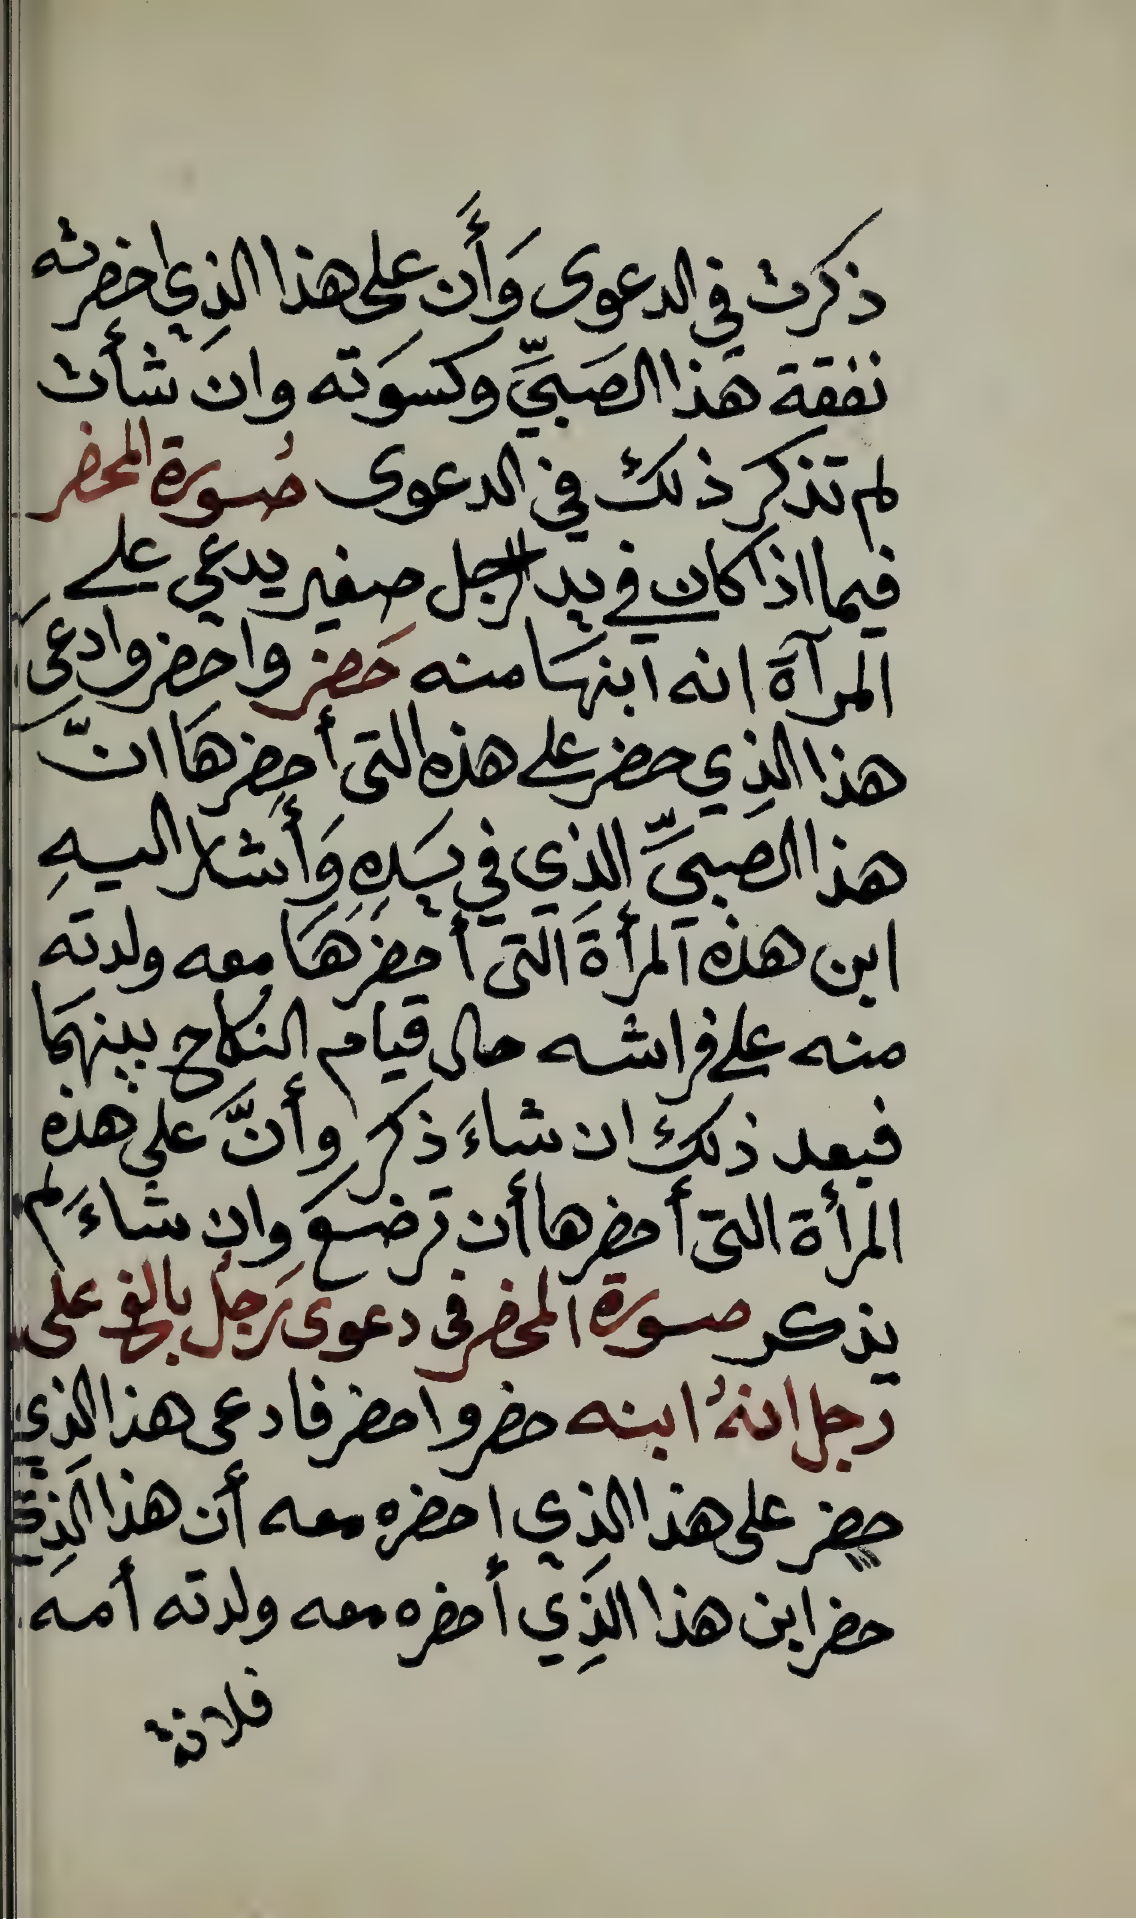 ذكرت في الدعوى وَأَن على هذا الذِي احضرته
نفقة هَذا الصَبيِّ وكسوَته وان شأت
لم تذكر ذلك في الدعوى صُورة المحضر
فيما اذا كان في يد الرجل صغير يدعي على
المرآة انه ابنهَا منه حَضر واحضر وادعى
هذا الذِي حضر على هذه التى أحضرهَا انّ
هذا الصبيَّ الذي في يَدِهِ وَأَشار اليهِ
ابن هذه المرأَة التى أحضرَهَا معه ولدته
منه على فراشه حال قيام النكاح بينهمَا
فبعد ذلك ان شاءَ ذكر وأنَّ على هذه
المرأة التى أحضرها أن ترضعَ وان شاءَ لم
يذكر صورة المحضر فى دعوى رَجلُ بالغ على
رجل انهُ ابنه حضر واحضر فادعى هذا الذي
حضر على هذا الذي احضره معه أن هذا الذِي
حضر ابن هذا الذِي أحضره معه ولدته أمه
فلانة